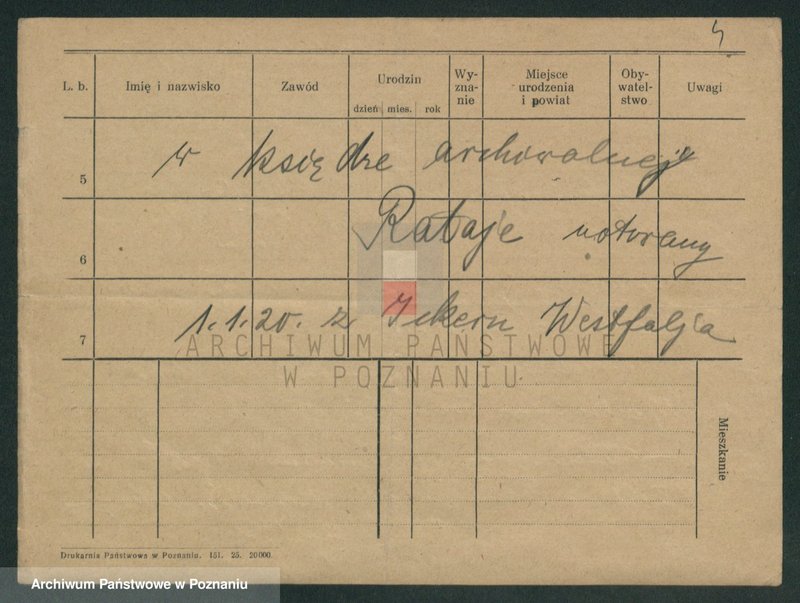 L. b. Imię i nazwisko Zawód Urodzin Wy-zna-nie Miejsce urodzenia i powiat Oby-watel-stwo Uwagi
dzień mies. rok
5 w księdze archiwalnej
6 Rataje notowany
7 1.1.20. z Ickern Westfalja
ARCHIWUM PAŃSTWOWE
W POZNANIU
Mieszkanie
Drukarnia Państwowa w Poznaniu. 151. 25. 20000.
Archiwum Państwowe w Poznaniu